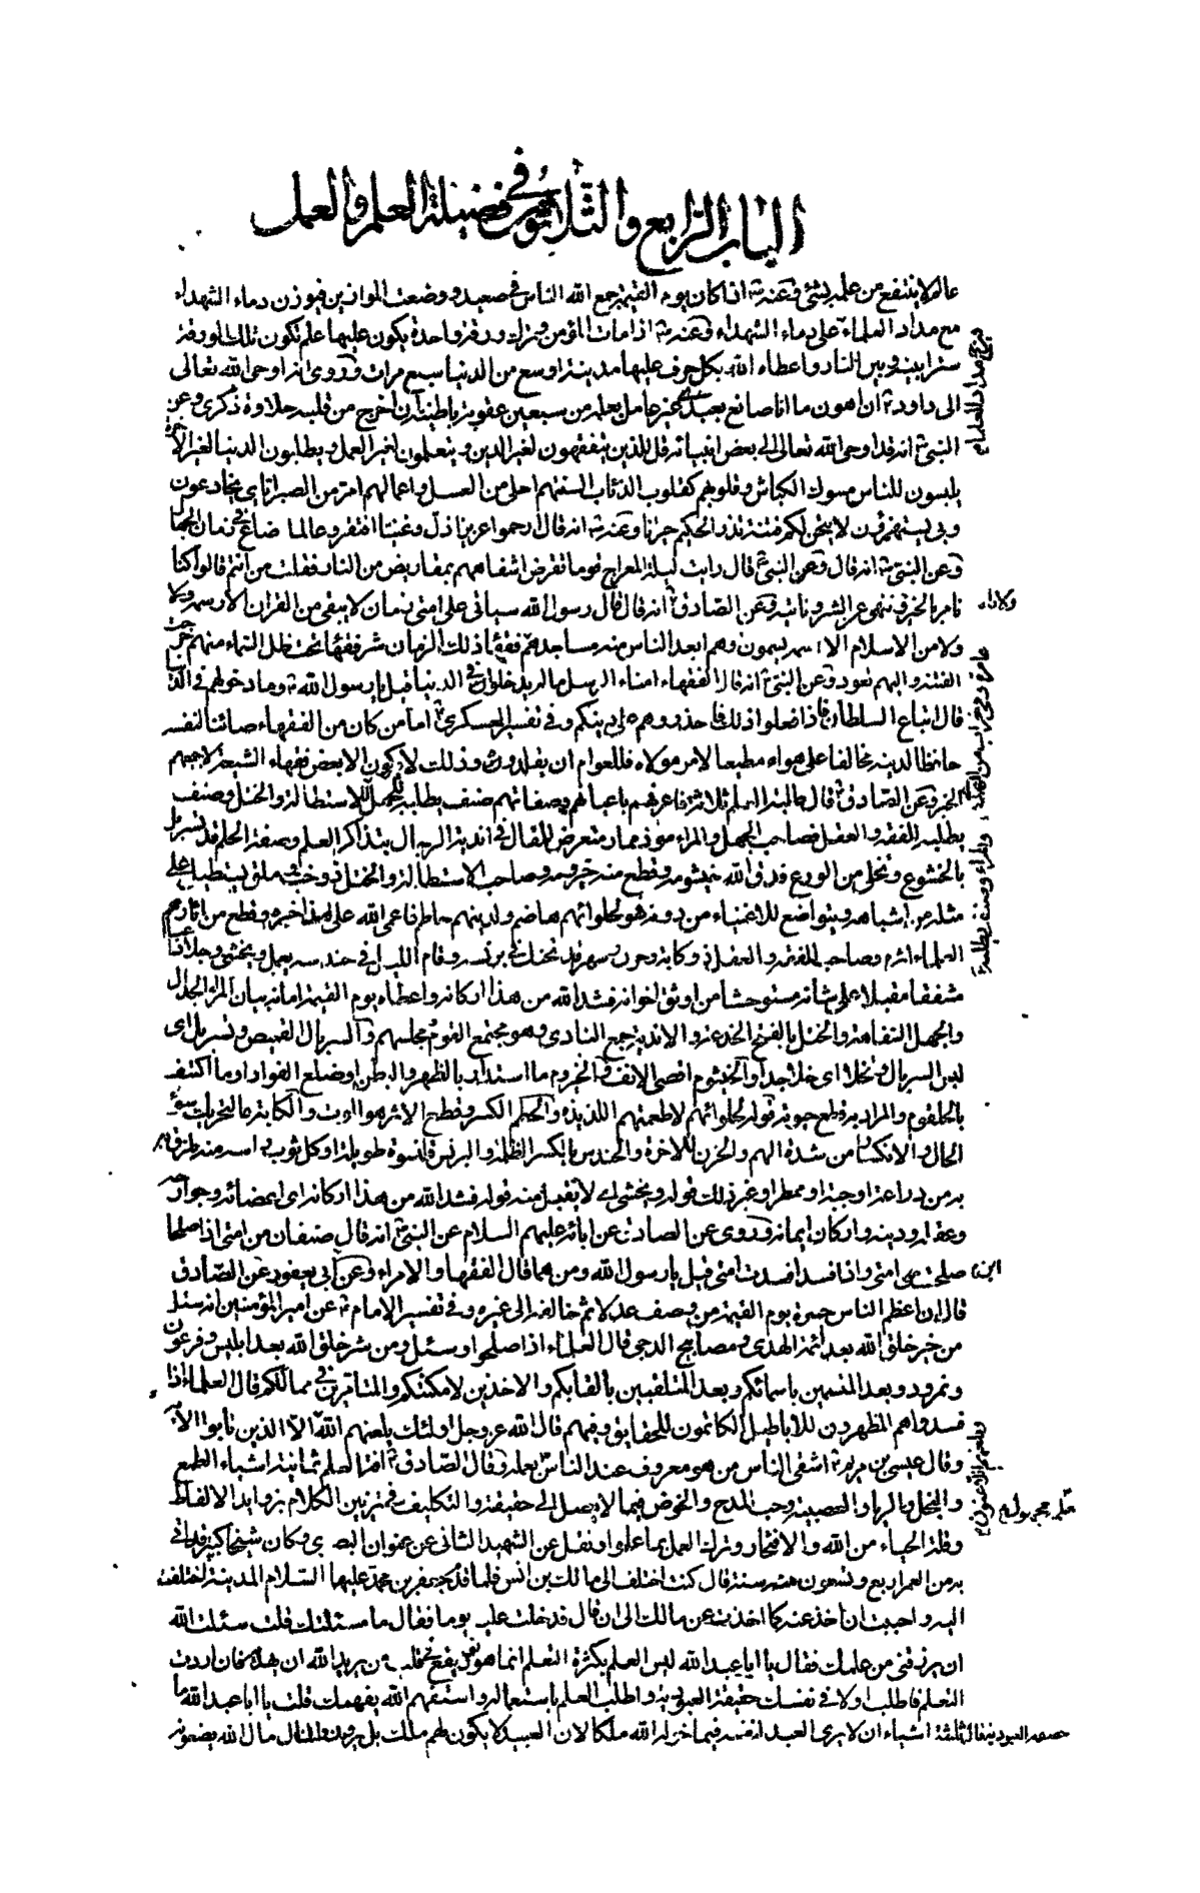 الباب الرابع والثلاثون في فضيلة العلم والعمل
عالم لا ينتفع من علمه بشئ وعنه ع اذا كان يوم القيمة جمع الله الناس في صعيد ووضعت الموازين فيوزن دماء الشهداء
مع مداد العلماء على دماء الشهداء وعنه ع اذا مات المؤمن وترك ورقة واحدة يكون عليها علم تكون تلك الورقة
سترا بينه وبين النار واعطاه الله بكل حرف عليها مدينة اوسع من الدنيا سبع مرات وروى انه اوحى الله تعالى
الى داود ع ان اهون ما انا صانع بعبد غير عامل بعلمه من سبعين عقوبة باطنية ان اخرج من قلبه حلاوة ذكرى وعن
النبي ص انه قد اوحى الله تعالى الى بعض انبيائه قل للذين يتفقهون لغير الدين ويتعلمون لغير العمل ويطلبون الدنيا لغير الآخرة
يلبسون للناس مسوك الكباش وقلوبهم كقلوب الذئاب السنتهم احلى من العسل واعمالهم امر من الصبر اياي يخادعون
وبي يستهزؤن لاتيحن لكم فتنة تذر الحكيم حيرانا وعنه ع انه قال ارحموا عزيزا ذل وغنيا افتقر وعالما ضاع في زمان الجهال
وعن النبي ص انه قال وعن النبي ص قال رايت ليلة المعراج قوما تقرض شفاههم بمقاريض من النار فقلت من انتم قالوا كنا
نامر بالخير وننهى عن الشر وناتيه وعن الصادق ع انه قال قال رسول الله سياتي على امتي زمان لا يبقى من القران الا رسمه ولا
ولا من الاسلام الا اسمه يسمون وهم ابعد الناس منه مساجدهم فقهاء ذلك الزمان شر فقهاء تحت ظل السماء منهم خرجت
الفتنة واليهم تعود وعن النبي ص انه قال الفقهاء امناء الرسل ما لم يدخلوا في الدنيا قيل يا رسول الله ص وما دخولهم في الدنيا
قال اتباع السلطان فاذا فعلوا ذلك فاحذروهم على دينكم وفي تفسير العسكري ع اما من كان من الفقهاء صائنا لنفسه
حافظا لدينه مخالفا على هواه مطيعا لامر مولاه فللعوام ان يقلدوه وذلك لا يكون الا بعض فقهاء الشيعة لا جميعهم
الخبر وعن الصادق ع قال طلبة العلم ثلاثة فاعرفهم باعيانهم وصفاتهم صنف يطلبه للجهل للاستطالة والختل وصنف
يطلبه للفقه والعقل فصاحب الجهل والمراء موذ ممار متعرض للمقال في اندية الرجال بتذاكر العلم وصفة الحلم قد تسربل
بالخشوع وتخلى من الورع فدق الله خيشومه وقطع منه حيزومه وصاحب الاستطالة والختل ذو خب وملق يستطيل على
مثله من اشباهه ويتواضع للاغنياء من دونه فهو لحلوائهم هاضم ولدينهم حاطم فاعمى الله على هذا خبره وقطع من اثار
العلماء اثره وصاحب الفقه والعقل ذو كابة وحزن وسهر قد تحنك في برنسه وقام الليل في حندسه يعمل ويخشى وجلا داعيا
مشفقا مقبلا على شانه مستوحشا من اوثق اخوانه فشد الله من هذا اركانه واعطاه يوم القيمة امانه بيان المراء الجدال
والجهل السفاهة والختل بالفتح الخدعة والاندية جمع النادي وهو مجتمع القوم ومجلسهم والسربال القميص وتسربل اى
لبس السربال وتخلا اى خلا جدا والخيشوم اقصى الانف والحيزوم ما استدار بالظهر والبطن او ضلع الفؤاد او ما اكتنف
بالحلقوم والمراد به قطع حيوته قوله لحلوائهم لاطعمتهم اللذيذة والحطم الكسر وقطع الاثر هو الموت والكابة بالتحريك سوء
الحال والانكسار من شدة الهم والحزن للاخرة والحندس بالكسر الظلمة والبرنس قلنسوة طويلة او كل ثوب راسه منه ملتزق
به من دراعة او جبة او ممطر او غير ذلك قوله ويخشى اى لا يقبل منه قوله فشد الله من هذا اركانه اى اعضائه وجوارحه
وعقله ودينه واركان ايمانه وروى عن الصادق عن ابائه عليهم السلام عن النبي ص انه قال صنفان من امتي اذا صلحا
صلحت امتي واذا فسدا فسدت امتي قيل يا رسول الله ومن هما قال الفقهاء والامراء وعن ابي يعفور عن الصادق
قال ان اعظم الناس حسرة يوم القيمة من وصف عدلا ثم خالفه الى غيره وفي تفسير الامام ع عن امير المؤمنين انه سئل
من خير خلق الله بعد ائمة الهدى ومصابيح الدجى قال العلماء اذا صلحوا وسئل ومن شر خلق الله بعد ابليس وفرعون
ونمرود وبعد المتسمين باسمائكم وبعد المتلقبين بالقابكم والاخذين لامكنتكم والمتامرين في ممالككم قال العلماء اذا
فسدوا هم المظهرون للاباطيل الكاتمون للحقايق وفيهم قال الله عز وجل اولئك يلعنهم الله الا الذين تابوا الآية
وقال عيسى بن مريم ع اشقى الناس من هو معروف عند الناس بعلمه وقال الصادق ع افة العلم ثمانية اشياء الطمع
والبخل والريا والعصبية وحب المدح والخوض فيما لا يصل الى حقيقته والتكليف في تزيين الكلام بزوايد الالفاظ
وقلة الحياء من الله والافتخار وترك العمل بما علموا ونقل عن الشهيد الثاني عن عنوان البصري وكان شيخا كبيرا قد اتى
به من العمر اربع وتسعون سنة قال كنت اختلف الى مالك بن انس فلما قدم جعفر بن محمد عليهما السلام المدينة اختلفت
اليه واحببت ان اخذ عنه كما اخذت عن مالك الى ان قال قد خلت عليه يوما فقال ما مسئلتك قلت سئلت الله
ان يرزقني من علمك فقال يا ابا عبد الله ليس العلم بكثرة التعلم انما هو نور يقع في قلب من يريد الله ان يهديه فان اردت
التعلم فاطلب اولا في نفسك حقيقة العبودية واطلب العلم باستعماله واستفهم الله يفهمك قلت يا ابا عبد الله ما
حقيقة العبودية قال ثلثة اشياء ان لا يرى العبد لنفسه فيما خوله الله ملكا لان العبيد لا يكون لهم ملك بل يرون المال مال الله يضعونه